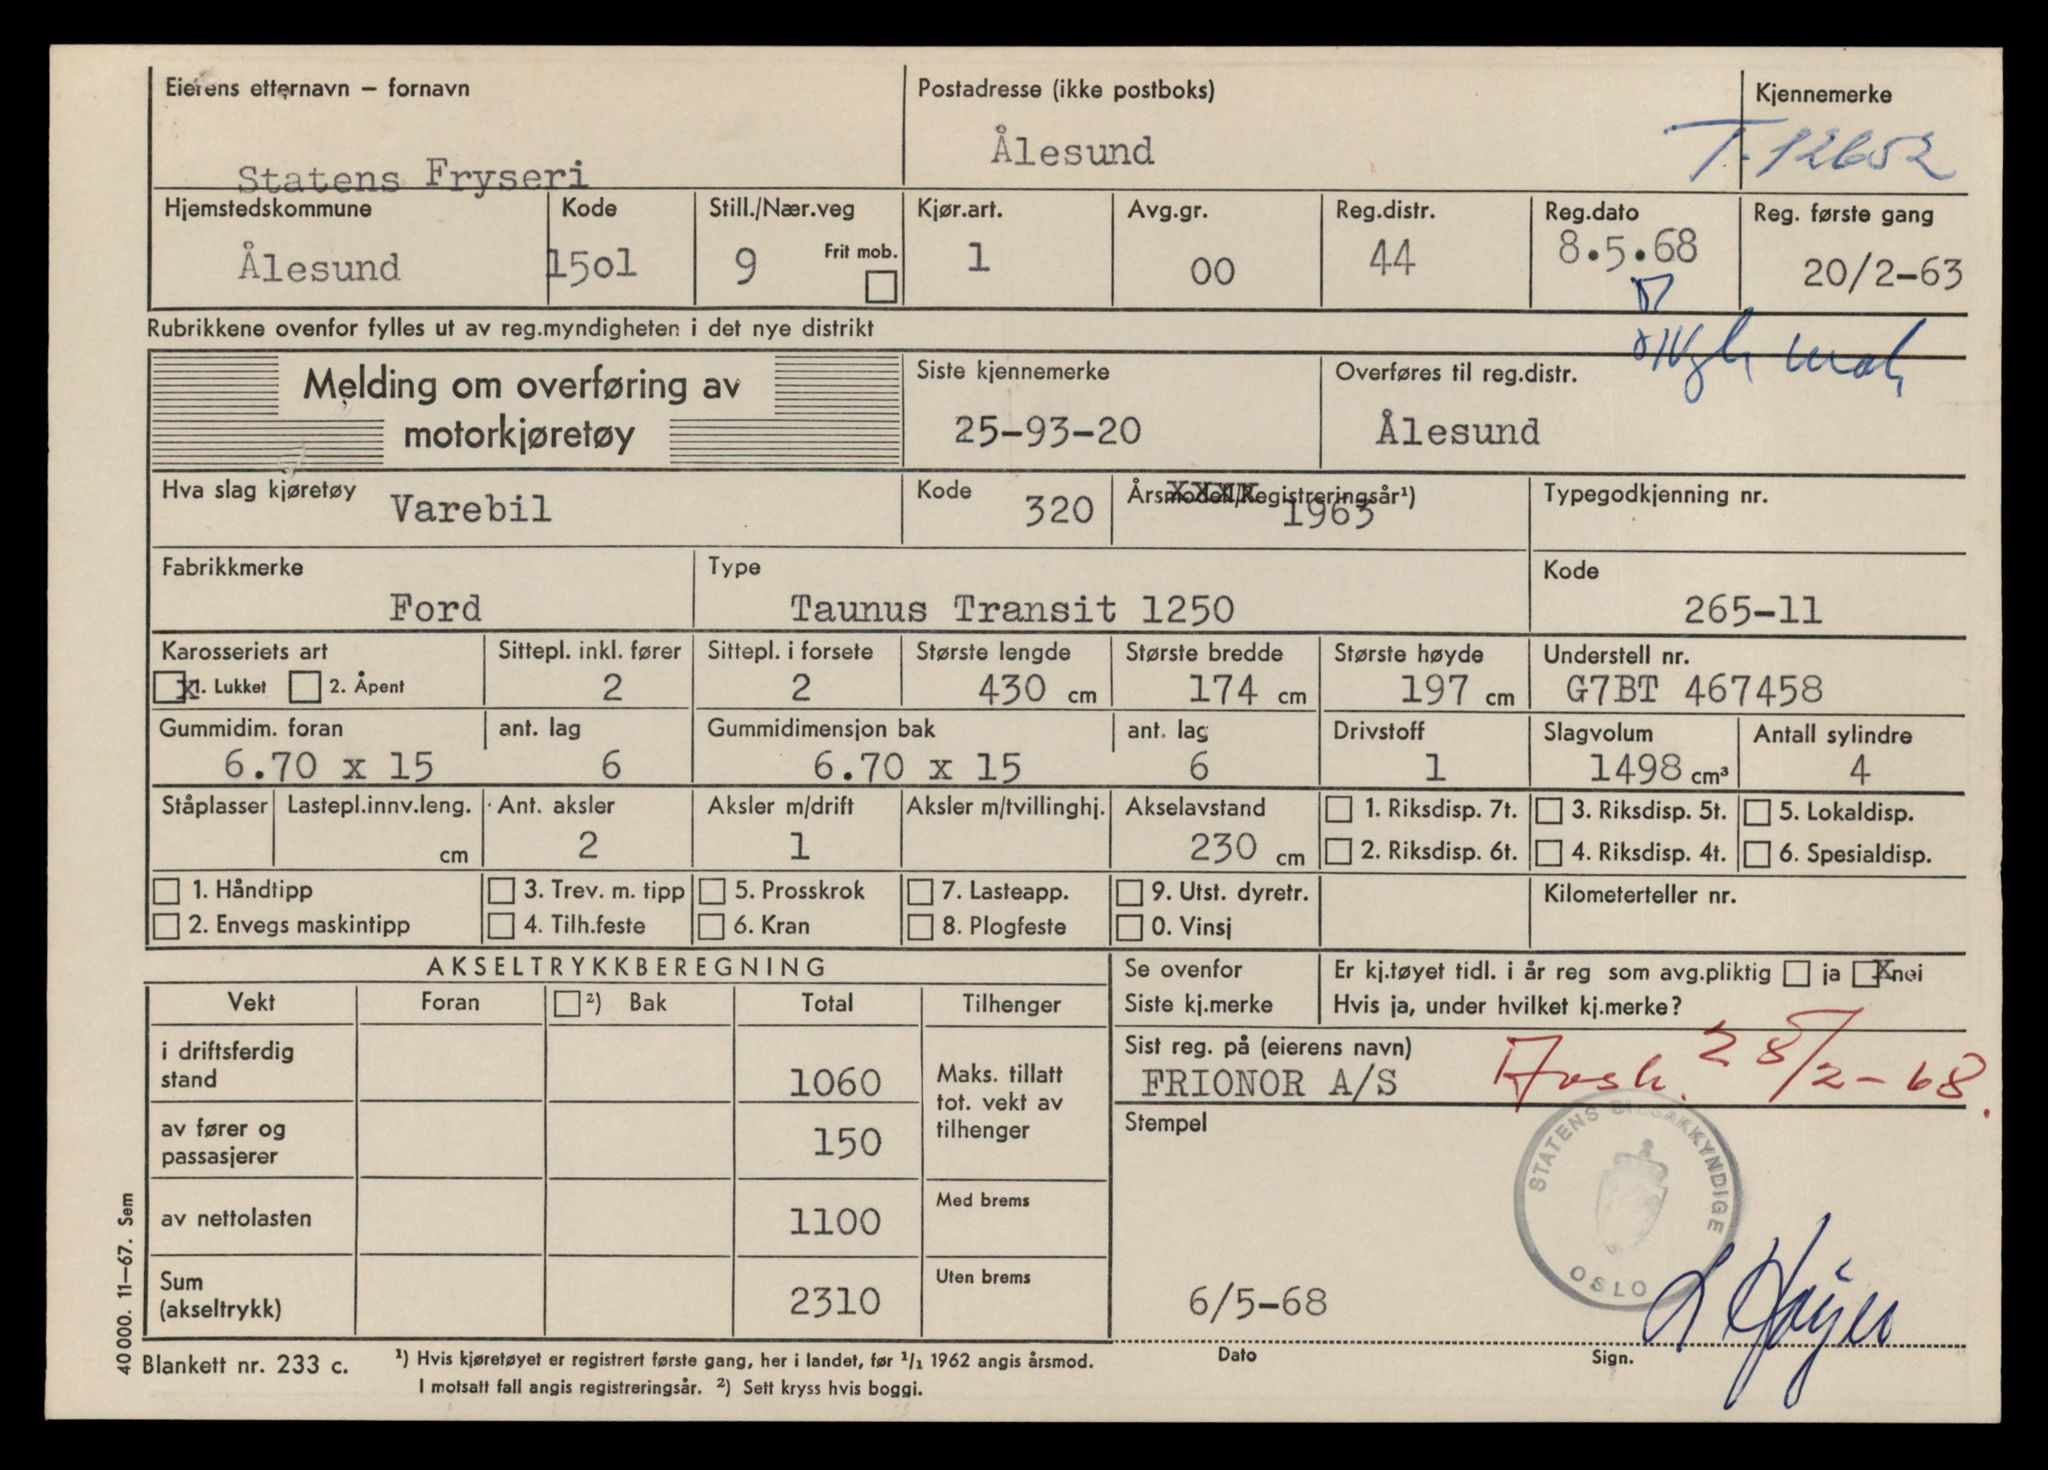 Eierens etternavn – fornavn
Postadresse (ikke postboks)
Kjennemerke
Statens Fryseri
Ålesund
T-12652
Hjemstedskommune
Kode
Still./Nær.veg
Kjør.art.
Avg.gr.
Reg.distr.
Reg.dato
Reg. første gang
Ålesund
15o1
9
Frit mob.
1
00
44
8.5.68
20/2-63
Rubrikkene ovenfor fylles ut av reg.myndigheten i det nye distrikt
Melding om overføring av
motorkjøretøy
Siste kjennemerke
25-93-20
Overføres til reg.distr.
Ålesund
Hva slag kjøretøy
Varebil
Kode
320
Årsmodell/Registreringsår¹)
1963
Typegodkjenning nr.
Fabrikkmerke
Ford
Type
Taunus Transit 1250
Kode
265-11
Karosseriets art
x1. Lukket 2. Åpent
Sittepl. inkl. fører
2
Sittepl. i forsete
2
Største lengde
430 cm
Største bredde
174 cm
Største høyde
197 cm
Understell nr.
G7BT 467458
Gummidim. foran
6.70 x 15
ant. lag
6
Gummidimensjon bak
6.70 x 15
ant. lag
6
Drivstoff
1
Slagvolum
1498 cm³
Antall sylindre
4
Ståplasser
Lastepl.innv.leng.
cm
Ant. aksler
2
Aksler m/drift
1
Aksler m/tvillinghj.
Akselavstand
230 cm
1. Riksdisp. 7t.
2. Riksdisp. 6t.
3. Riksdisp. 5t.
4. Riksdisp. 4t.
5. Lokaldisp.
6. Spesialdisp.
1. Håndtipp
2. Envegs maskintipp
3. Trev. m. tipp
4. Tilh.feste
5. Prosskrok
6. Kran
7. Lasteapp.
8. Plogfeste
9. Utst. dyretr.
0. Vinsj
Kilometerteller nr.
AKSELTRYKKBEREGNING
Se ovenfor
Siste kj.merke
Er kj.tøyet tidl. i år reg som avg.pliktig ja x nei
Hvis ja, under hvilket kj.merke?
Vekt
Foran
²) Bak
Total
Tilhenger
i driftsferdig
stand
1060
av fører og
passasjerer
150
av nettolasten
1100
Sum
(akseltrykk)
2310
Maks. tillatt
tot. vekt av
tilhenger
Med brems
Uten brems
Sist reg. på (eierens navn)
FRIONOR A/S
28/2-68.
Stempel
STATENS BILSAKKYNDIGE
OSLO
6/5-68
Dato
Sign.
40 000. 11–67. Sem
Blankett nr. 233 c.
¹) Hvis kjøretøyet er registrert første gang, her i landet, før ¹/₁ 1962 angis årsmod.
I motsatt fall angis registreringsår. ²) Sett kryss hvis boggi.